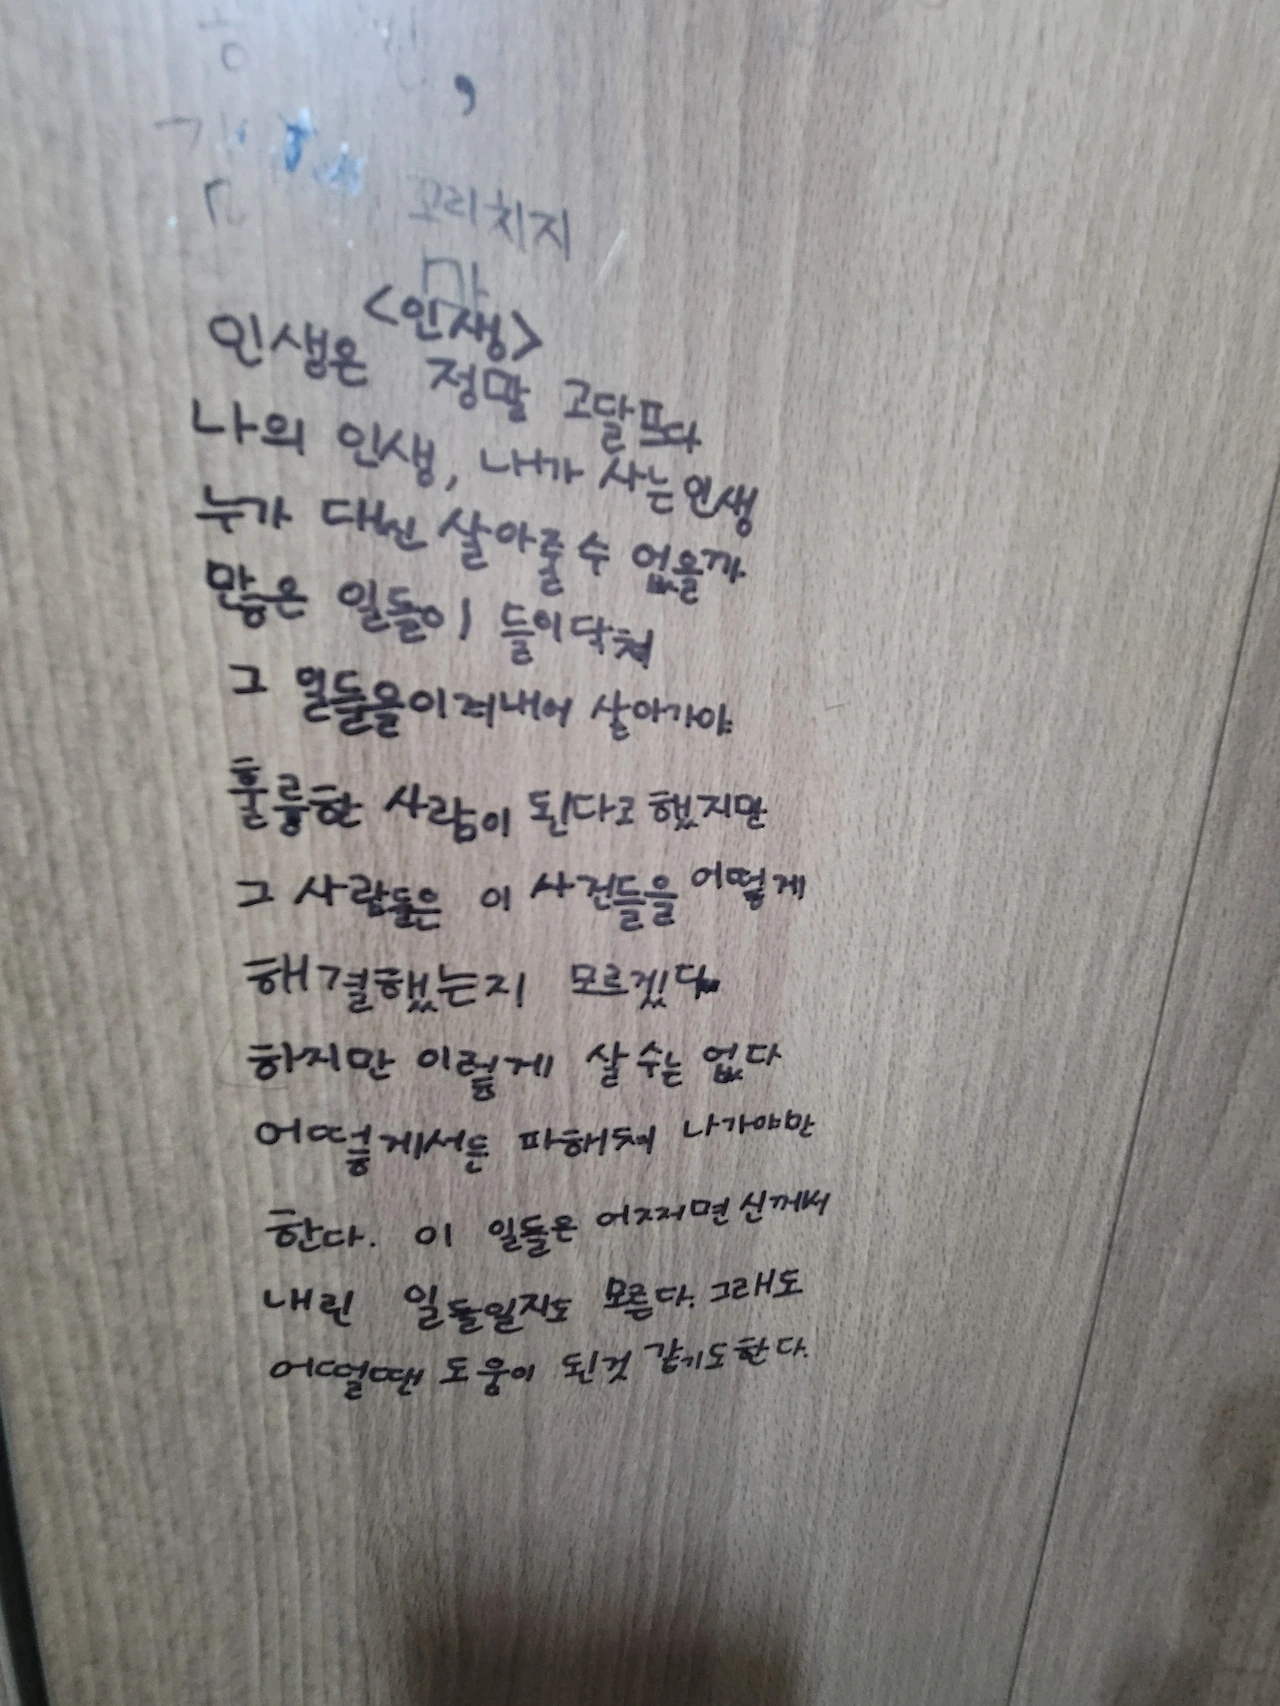 ,
꼬리치지
마
<인생>
인생은 정말 고달프다
나의 인생, 내가 사는 인생
누가 대신 살아줄 수 없을까
많은 일들이 들이닥쳐
그 일들을 이겨내어 살아가야
훌륭한 사람이 된다고 했지만
그 사람들은 이 사건들을 어떻게
해결했는지 모르겠다
하지만 이렇게 살 수는 없다
어떻게서든 파해쳐 나가야만
한다. 이 일들은 어쩌면 신께서
내린 일들일지도 모른다. 그래도
어떨땐 도움이 된것 같기도한다.